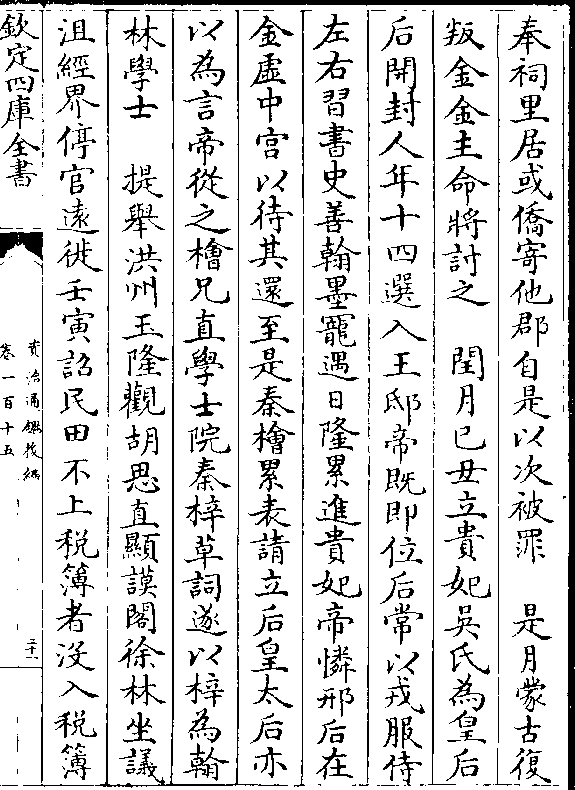 奉祠里居或僑寄他郡自是以次被罪　是月蒙古復
叛金金主命將討之　閏月己丑立貴妃吳氏為皇后
后開封人年十四選入王邸帝既即位后常以戎服侍
左右習書史善翰墨寵遇日隆累進貴妃帝憐邢后在
金虛中宮以待其還至是秦檜累表請立后皇太后亦
以為言帝從之檜兄直學士院秦梓草詞遂以梓為翰
林學士　提舉洪州玉隆觀胡思直顯謨閣徐林坐議
沮經界停官遠徙壬寅詔民田不上税簿者沒入税簿
欽定四庫全書
資治通鑑後編
卷一百十五